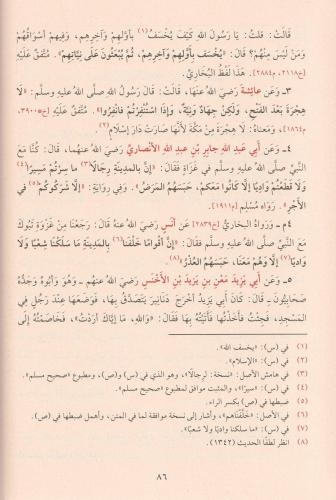 قَالَتْ: قلتُ: يَا رَسُولَ اللهِ كَيْفَ يُخْسَفُ(١) بِأَوَّلِهِمْ وَآخِرِهِمْ، وَفِيهِمْ أَسْوَاقُهُمْ
وَمَنْ لَيْسَ مِنْهُمْ؟ قَالَ: «يُخْسَفُ بِأَوَّلِهِمْ وَآخِرِهِمْ، ثُمَّ يُبْعَثُونَ عَلَى نِيَّاتِهِمْ». مُتَّفَقٌ عَلَيْهِ
[خ٢١١٨، م٢٨٨٤]. هَذَا لَفْظُ الْبُخَارِيِّ.
٣ ـ وَعَن عائِشةَ رَضِيَ اللهُ عَنهَا، قَالَت: قَالَ رَسُولُ اللهِ صلَّى اللهُ عليهِ وسلَّم: «لَا
هِجْرَةَ بَعْدَ الفَتْحِ، وَلَكِنْ جِهَادٌ وَنِيَّةٌ، وَإِذَا اسْتُنْفِرْتُمْ فَانْفِرُوا». مُتَّفَقٌ عَلَيْهِ [خ٣٩٠٠،
م١٨٦٤]، وَمَعناهُ: لَا هِجرَةَ مِنْ مَكَّةَ لأَنَّهَا صَارَتْ دَارَ إسْلَامٍ(٢).
٤ ـ وَعَن أَبِي عَبدِ اللهِ جابِرِ بنِ عَبدِ اللهِ الأَنْصارِيِّ رَضِيَ اللهُ عَنهُمَا، قَالَ: كُنَّا مَعَ
النَّبِيِّ صلَّى اللهُ عليهِ وسلَّم فِي غَزَاةٍ فَقَالَ: «إِنَّ بِالمدينَةِ رِجَالًا(٣) ما سِرْتُمْ مَسِيرًا(٤)
وَلَا قَطَعْتُم وَادِيًا إلَّا كَانُوا مَعَكمْ، حَبَسَهُمُ المَرَضُ». وَفِي رِوَايَةٍ: «إلَّا شَرَكُوكُمْ(٥) في
الأَجْرِ». رَوَاه مُسْلِم [م١٩١١].
٤م ـ وَرَواهُ البخارِيُّ [خ٢٨٣٩] عَن أَنَسٍ رَضِيَ اللهُ عنهُ قالَ: رَجَعْنَا مِنْ غَزْوَةِ تَبُوكَ
مَعَ النَّبِيِّ صلَّى اللهُ عليهِ وسلَّم فَقَالَ: «إنَّ أَقْوامًا خَلْفَنَا(٦) بالمدِينَةِ مَا سَلَكنَا شِعْبًا وَلَا
وَادِيًا(٧) إلَّا وَهُمْ مَعَنَا، حَبَسَهُمُ العُذْرُ»(٨).
٥ ـ وَعَن أَبِي يَزِيدَ مَعْنِ بنِ يَزِيدَ بنِ الأَخْنَسِ رَضِيَ اللهُ عنهم ـ وَهوَ وَأَبوهُ وَجَدُّهُ
صَحابِيُّون ـ قَالَ: كَانَ أَبِي يَزِيدُ أَخْرَجَ دَنَانِيرَ يَتَصَدَّقُ بِهَا، فَوَضَعَهَا عِنْدَ رَجُلٍ فِي
المَسْجِدِ، فَجِئْتُ فأَخَذْتُهَا فَأَتَيْتُهُ بِهَا فَقَالَ: «وَاللهِ، مَا إِيَّاكَ أَرَدْتُ»، فَخَاصَمْتُهُ إلَى
(١) في (س): «يخسف الله».
(٢) في (س): «الإسلام».
(٣) في هامش الأصل: «نسخة: لرجالًا»، وهو الذي في (س) و(ص)، ومطبوع «صحيح مسلم».
(٤) في (س): «سيرًا»، والمثبت موافق لمطبوع «صحيح مسلم».
(٥) ضبطها في (ص) بكسر الراء.
(٦) في الأصل: «خَلَّفْنَاهم»، وأشار إلى نسخة موافقة لما في المتن، وأهمل ضبطها في (ص).
(٧) في (س): «ما سلكنا واديًا ولا شعبًا».
(٨) انظر لفظًا الحديث (١٣٤٢).
٨٦